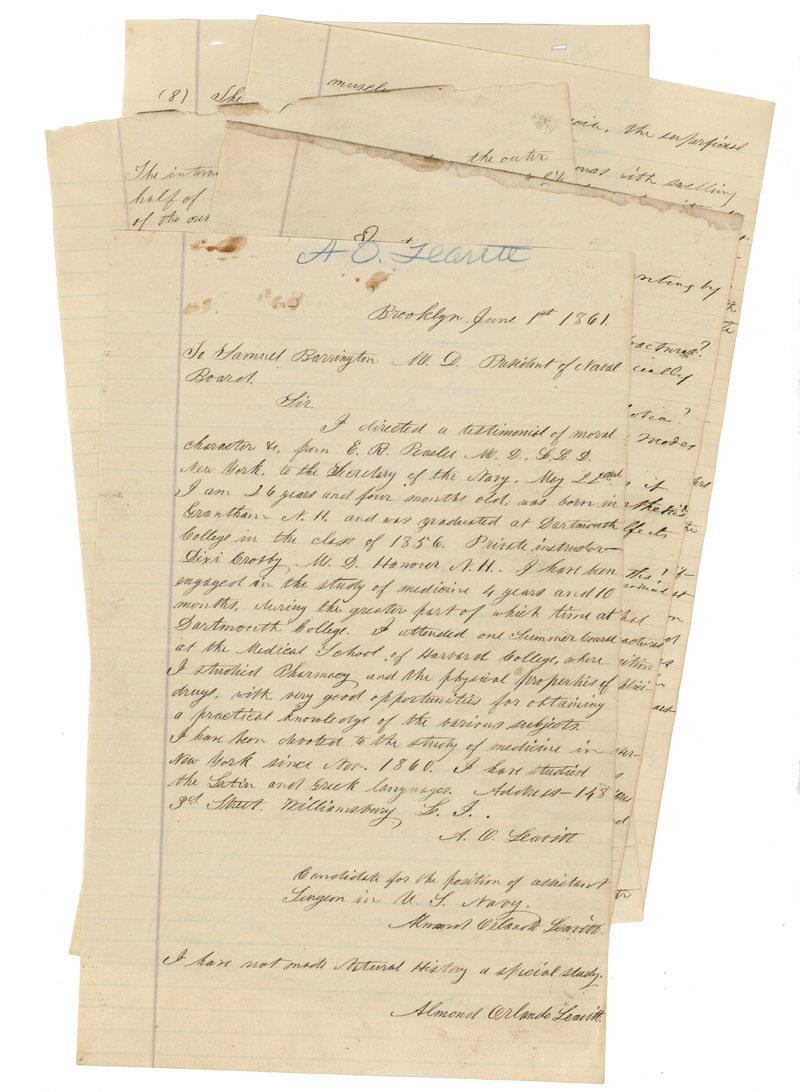 (8) The
muscle
the superficial
the outer
with swelling
The intern
half of
of the
A O. Leavitt
Brooklyn June 1st 1861.
To Samuel Barrington M. D. President of Naval
Board.
Sir.
I directed a testimonial of moral
character &c, from E. R. Peaslee M. D. L L. D.
New York, to the Secretary of the Navy, May 22nd
I am 26 years and four months old; was born in
Grantham N. H. and was graduated at Dartmouth
College in the class of 1856. Private instructor—
Dixi Crosby M. D. Hanover N. H.. I have been
engaged in the study of medicine 4 years and 10
months, during the greater part of which time at
Dartmouth College. I attended one Summer Course
at the Medical School of Harvard College, where
I studied Pharmacy and the physical properties of
drugs, with very good opportunities for obtaining
a practical knowledge of the various subjects.
I have been devoted to the study of medicine in
New York since Nov. 1860. I have studied
the Latin and Greek languages. Address— 148
3rd Street. Williamsburg, L. I..
A. O. Leavitt
Candidate for the position of assistant
Surgeon in U. S. Navy.
Almond Orlando Leavitt.
I have not made Natural History a special study.
Almond Orlando Leavitt.